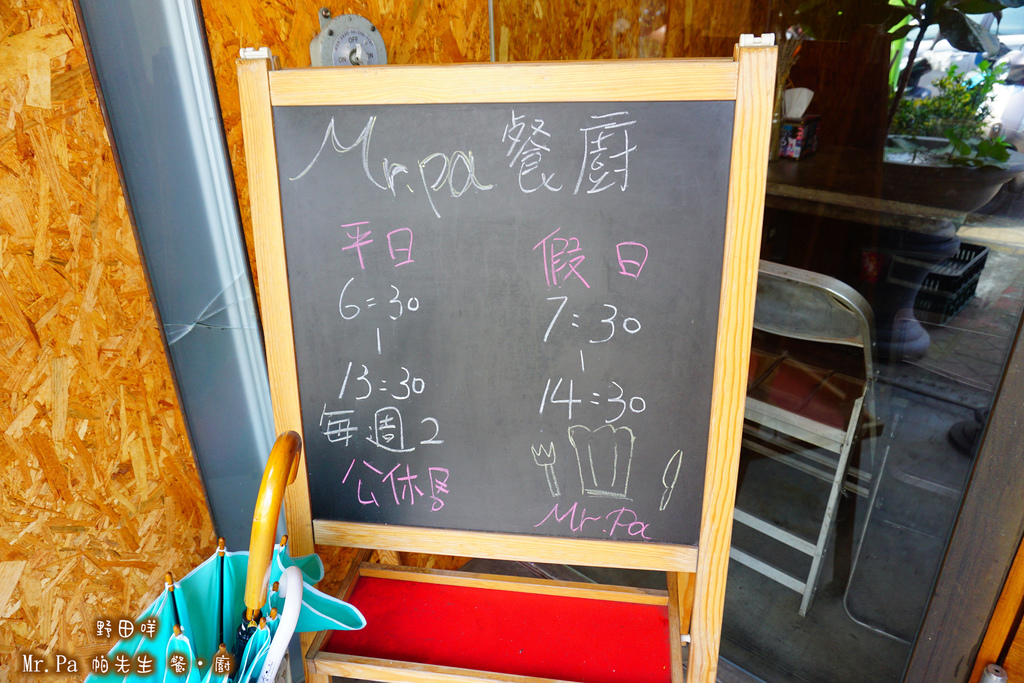 Mr.pa 餐廚
平日
6:30
|
13:30
每週2
公休日
假日
7:30
|
14:30
Mr.Pa
野田咩
Mr.Pa 帕先生 餐·廚